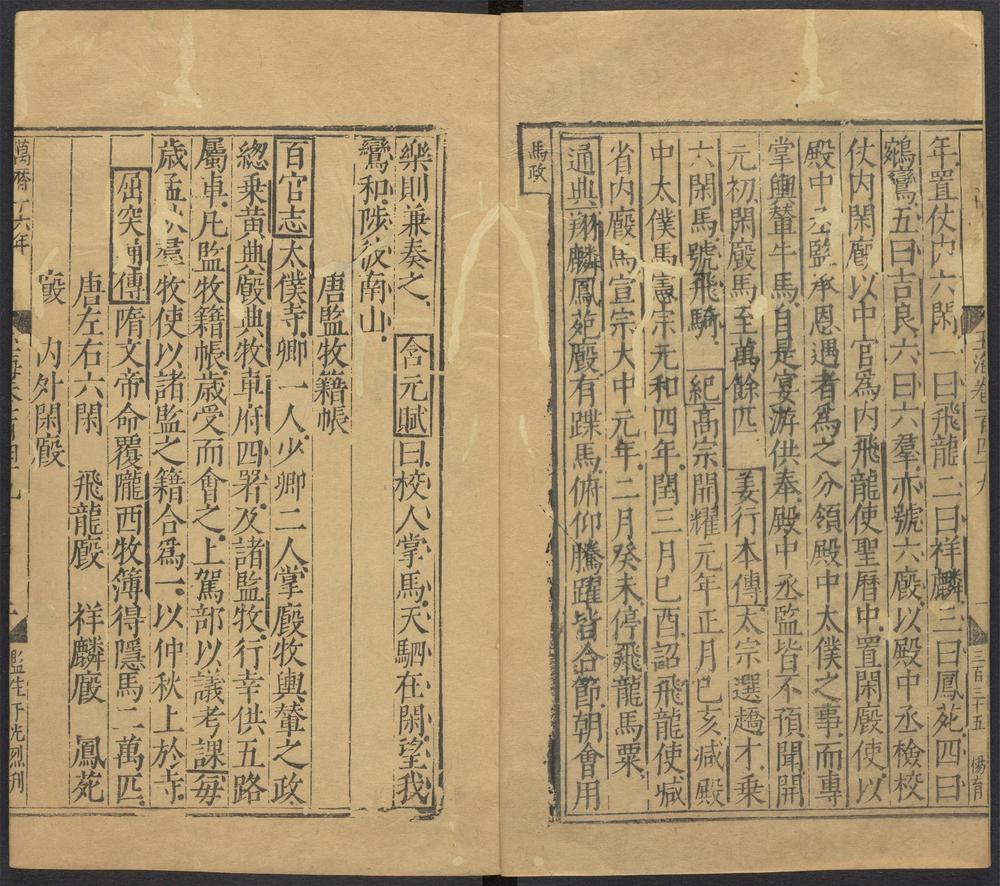 玉海卷一百四十九
三百三十五
楊育
年置仗內六閑一曰飛龍二曰祥麟三曰鳳苑四曰
鵷鸞五曰吉良六曰六羣亦號六廄以殿中丞檢校
仗內閑廄以中官爲內飛龍使聖曆中置閑廄使以
殿中丞監承恩遇者爲之分領殿中太僕之事而專
掌輿輦牛馬自是宴游供奉殿中丞監皆不預聞開
元初閑廄馬至萬餘匹 姜行本傳太宗選趫才乗
六閑馬號飛騎 紀高宗開耀元年正月巳亥減殿
中太僕馬憲宗元和四年閏三月巳酉詔飛龍使減
省內廄馬宣宗大中元年二月癸未停飛龍馬粟
通典翔麟鳳苑廄有蹀馬俯仰騰躍皆合節朝會用
馬政
樂則兼奏之 含元賦曰校人掌馬天駟在閑望我
鸞和陟彼南山
唐監牧籍帳
百官志太僕寺卿一人少卿二人掌廄牧輿輦之政
緫乗黃典廄典牧車府四署及諸監牧行幸供五路
屬車凡監牧籍帳歲受而會之上駕部以議考課毎
歲孟 羣牧使以諸監之籍合爲一以仲秋上於寺
屈突通傳隋文帝命覆隴西牧簿得隱馬二萬匹
唐左右六閑 飛龍廄 祥麟廄 鳳苑
廄 內外閑廄
萬曆 六年
監生 光烈刋